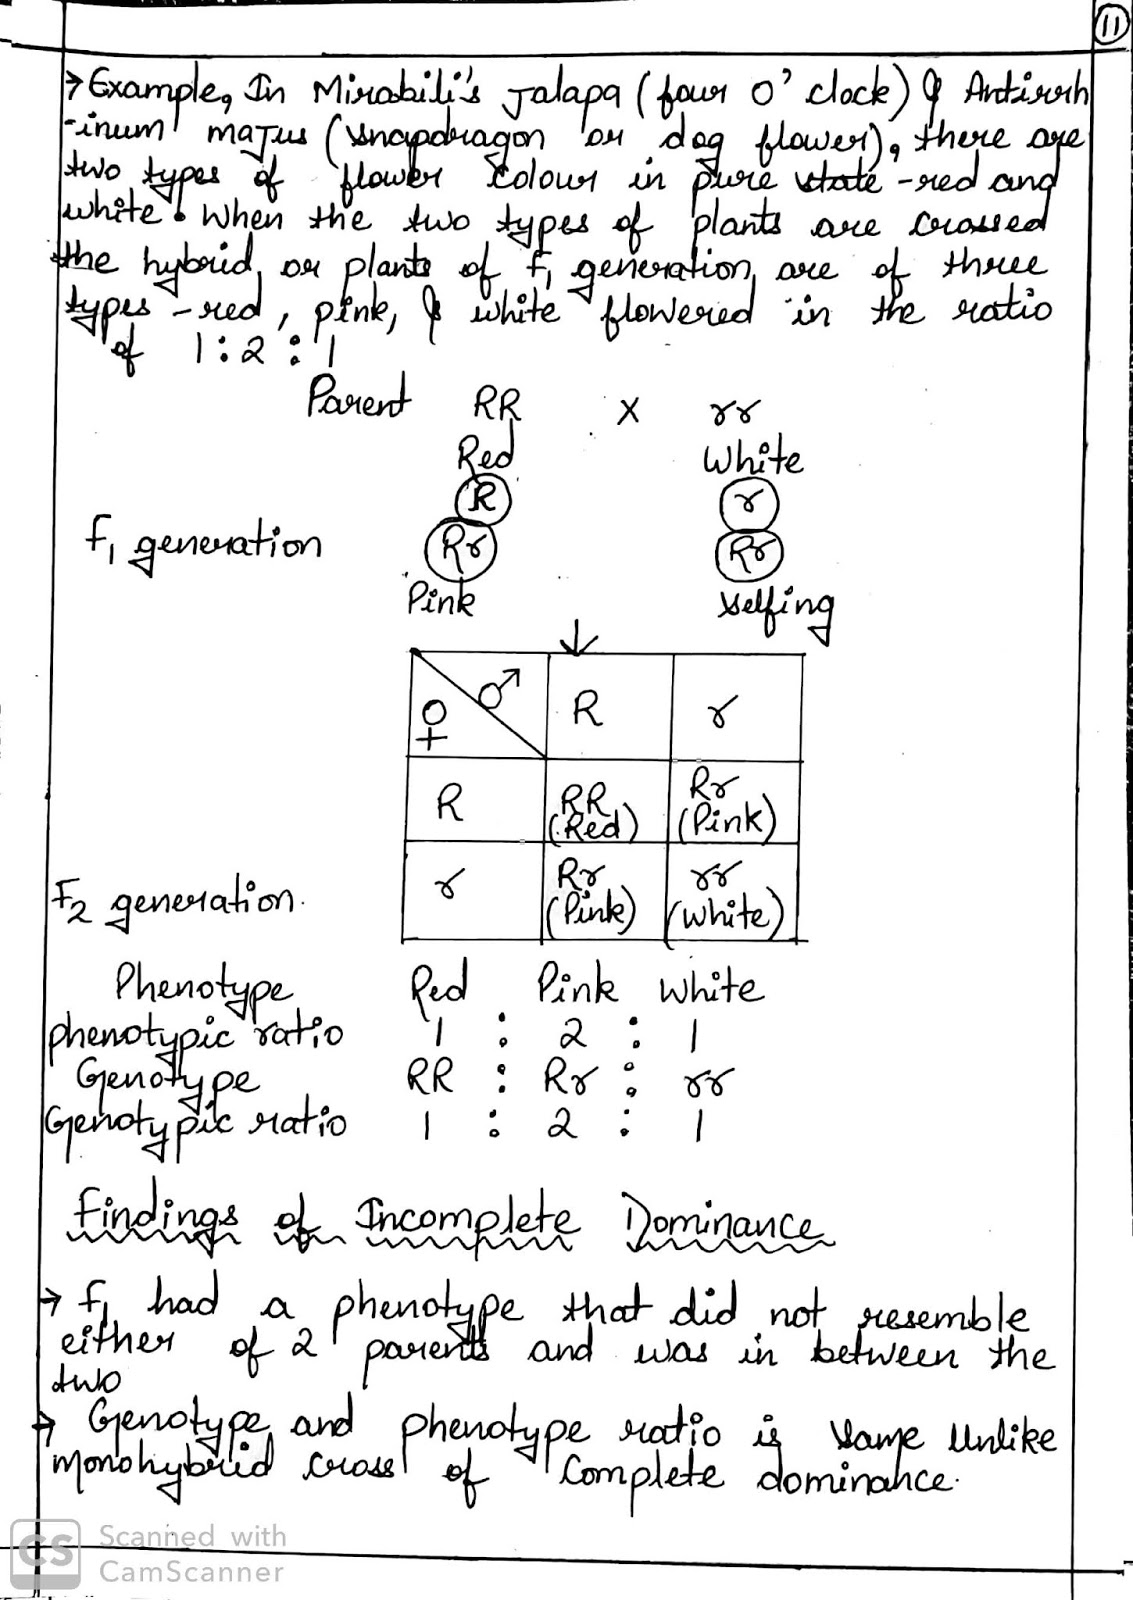 11
→ Example, In Mirabili's Jalapa (four O' clock) & Antirrh
-inum majus (snapdragon or dog flower), there are
two types of flower colour in pure state - red and
white. When the two types of plants are crossed
the hybrid, or plants of F1 generation, are of three
types - red, pink, & white flowered in the ratio
of 1 : 2 : 1
Parent RR X rr
Red White
R r
F1 generation Rr Rr
Pink Selfing
↓
♀ ♂ R r
R RR (Red) Rr (Pink)
r Rr (Pink) rr (White)
F2 generation.
Phenotype Red Pink White
phenotypic ratio 1 : 2 : 1
Genotype RR : Rr : rr
Genotypic ratio 1 : 2 : 1
Findings of Incomplete Dominance
→ F1 had a phenotype that did not resemble
either of 2 parents and was in between the
two
→ Genotype and phenotype ratio is same Unlike
monohybrid cross of Complete dominance.
CS Scanned with
CamScanner